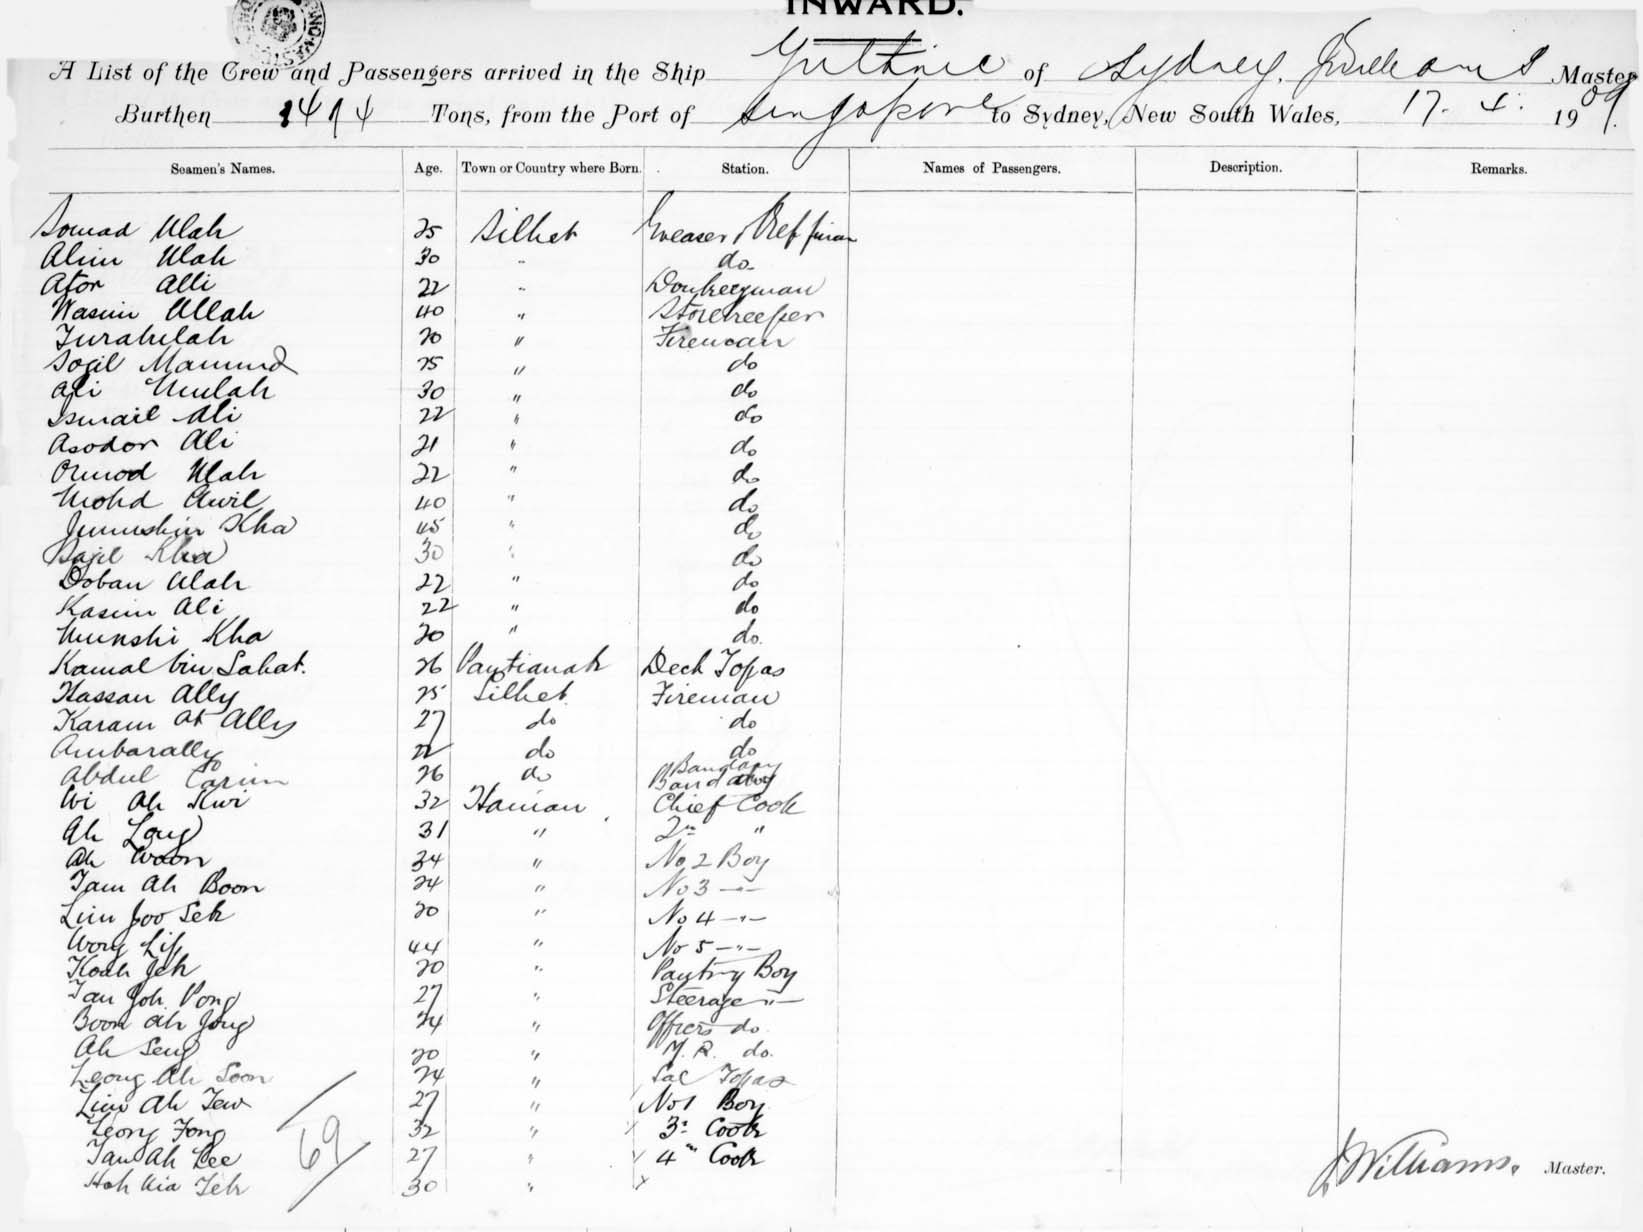 INWARD.
A List of the Crew and Passengers arrived in the Ship Guthrie of Sydney, J Williams Master
Burthen 1494 Tons, from the Port of Singapore to Sydney, New South Wales, 17. 4. 1909.
Seamen's Names. Age. Town or Country where Born. Station. Names of Passengers. Description. Remarks.
Somad Ulah 25 Silhet Greaser
Alim Ulah 30 " do
Ator Alli 22 " Donkeyman
Wasim Ullah 40 " Storekeeper
20 " Fireman
Sogil Mamud 25 " do
Ali Umlah 30 " do
Ismail Ali 22 " do
Asodor Ali 21 " do
Ormod Ulah 22 " do
Mohd Awil 40 " do
Jumshir Kha 45 " do
Sajil Kha 30 " do
Doban Ulah 22 " do
Kasim Ali 22 " do
Munshi Kha 20 " do.
Kamal bin Sahat. 26 Pontianak Deck Topas
Hassan Ally 25 Silhet Fireman
Karam at Ally 27 do do
Ambarally 22 do do
Abdul Carim 26 do Bandary
Wi Ah Kwi 32 Hainan Chief Cook
Ah Long 31 " 2n "
Ah Woon 34 " No 2 Boy
Tam Ah Boon 24 " No 3 -"-
Lim Joo Sek 20 " No 4 -"-
Wong Lip 44 " No 5 -"-
Koah Jek 20 " Pantry Boy
Tan Joh Pong 27 " Steerage -"-
Boon Ah Jong 24 " Officers do
Ah Seng 20 " do.
Leong Ah Soon 24 " Sal Topas
Lim Ah Tew 27 " No 1 Boy
Leong Fong 32 " 3r Cook
Tan Ah Lee 27 " 4th Cook
Hoh Kia Tek 30 "
69
J Williams. Master.